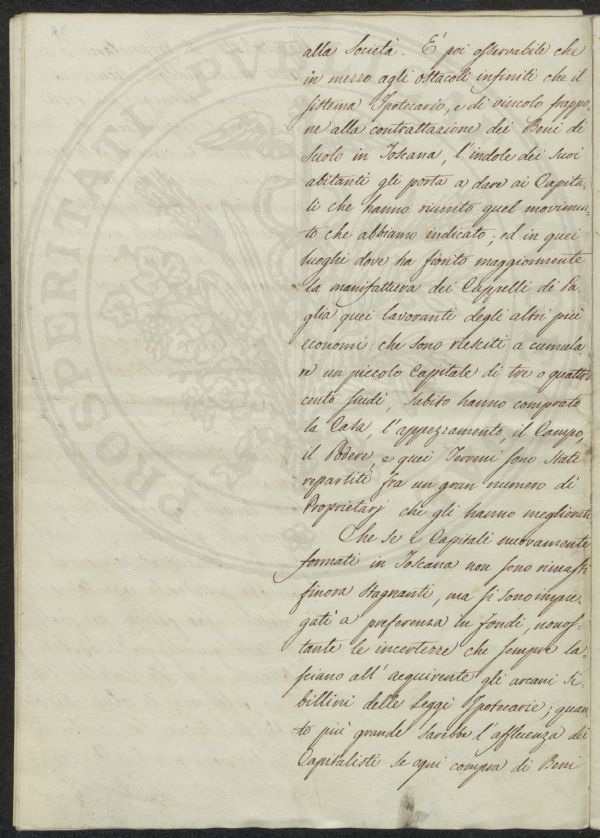 alla Società. E' poi osservabile che
in mezzo agli ostacoli infiniti che il
sistema Ipotecario, e di vincolo frappo,
ne alla contrattazione dei Beni di
Suolo in Toscana, l'indole dei suoi
abitanti gli porta a dare ai Capita,
li che hanno riunito quel movimen,
to che abbiamo indicato; ed in quei
luoghi dove ha fiorito maggiormente
la manifattura dei Cappelli di Pa,
glia quei lavoranti degli altri più
economi che sono riesciti a cumula,
re un piccolo Capitale di tre o quattro
cento scudi, subito hanno comprato
la Casa, l'appezzamento, il Campo,
il Podere, e quei Terreni sono stati
repartiti fra un gran numero di
Proprietarj che gli hanno megliorati
Che se i Capitali nuovamente
formati in Toscana non sono rimasti
finora stagnanti, ma si sono impie,
gati a preferenza in fondi, nonos,
tante le incertezze che sempre la,
sciano all'acquirente gli arcani Si,
billini delle Leggi Ipotecarie; quan,
to più grande sarebbe l'affluenza dei
Capitalisti se ogni compra di Beni
PROSPERITATI PVB